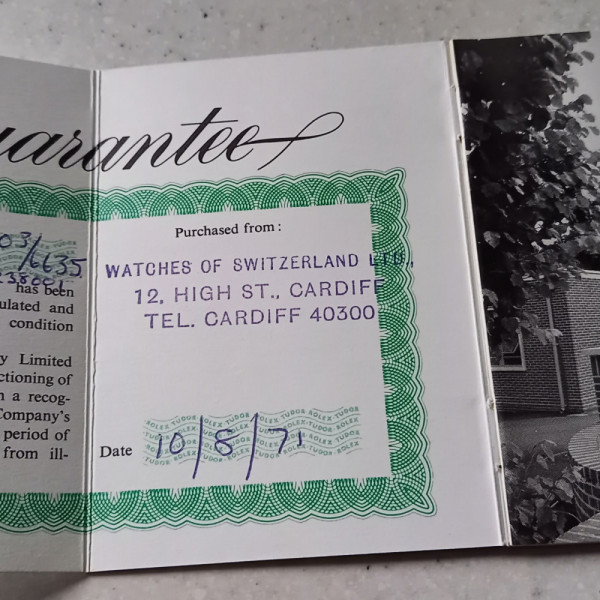 uarantee
03/6635
has been
ulated and
condition
y Limited
ctioning of
n a recog-
Company's
period of
from ill-
Purchased from :
WATCHES OF SWITZERLAND LTD.,
12, HIGH ST., CARDIFF
TEL. CARDIFF 40300
ROLEX TUDOR ROLEX TUDOR
Date 10/8/71